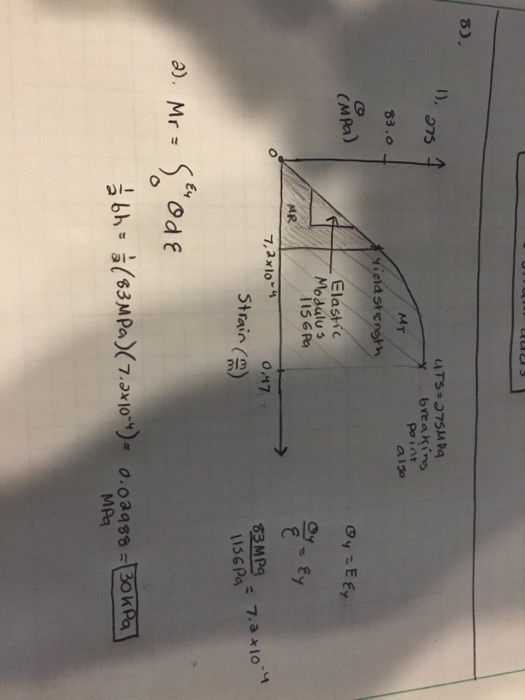 8).
1). 275
83.0
σ
(MPa)
0
UTS = 275MPa
breaking
point
also
MT
yield strength
MR
Elastic
Modulus
115GPa
7.2x10⁻⁴
0.47
Strain (m/m)
σy = Eεy
σy/ε = εy
83MPa/115GPa = 7.2x10⁻⁴
2). Mr = ∫₀^εy σdε
½bh = ½(83MPa)(7.2x10⁻⁴) = 0.02988 = 30kPa
MPa